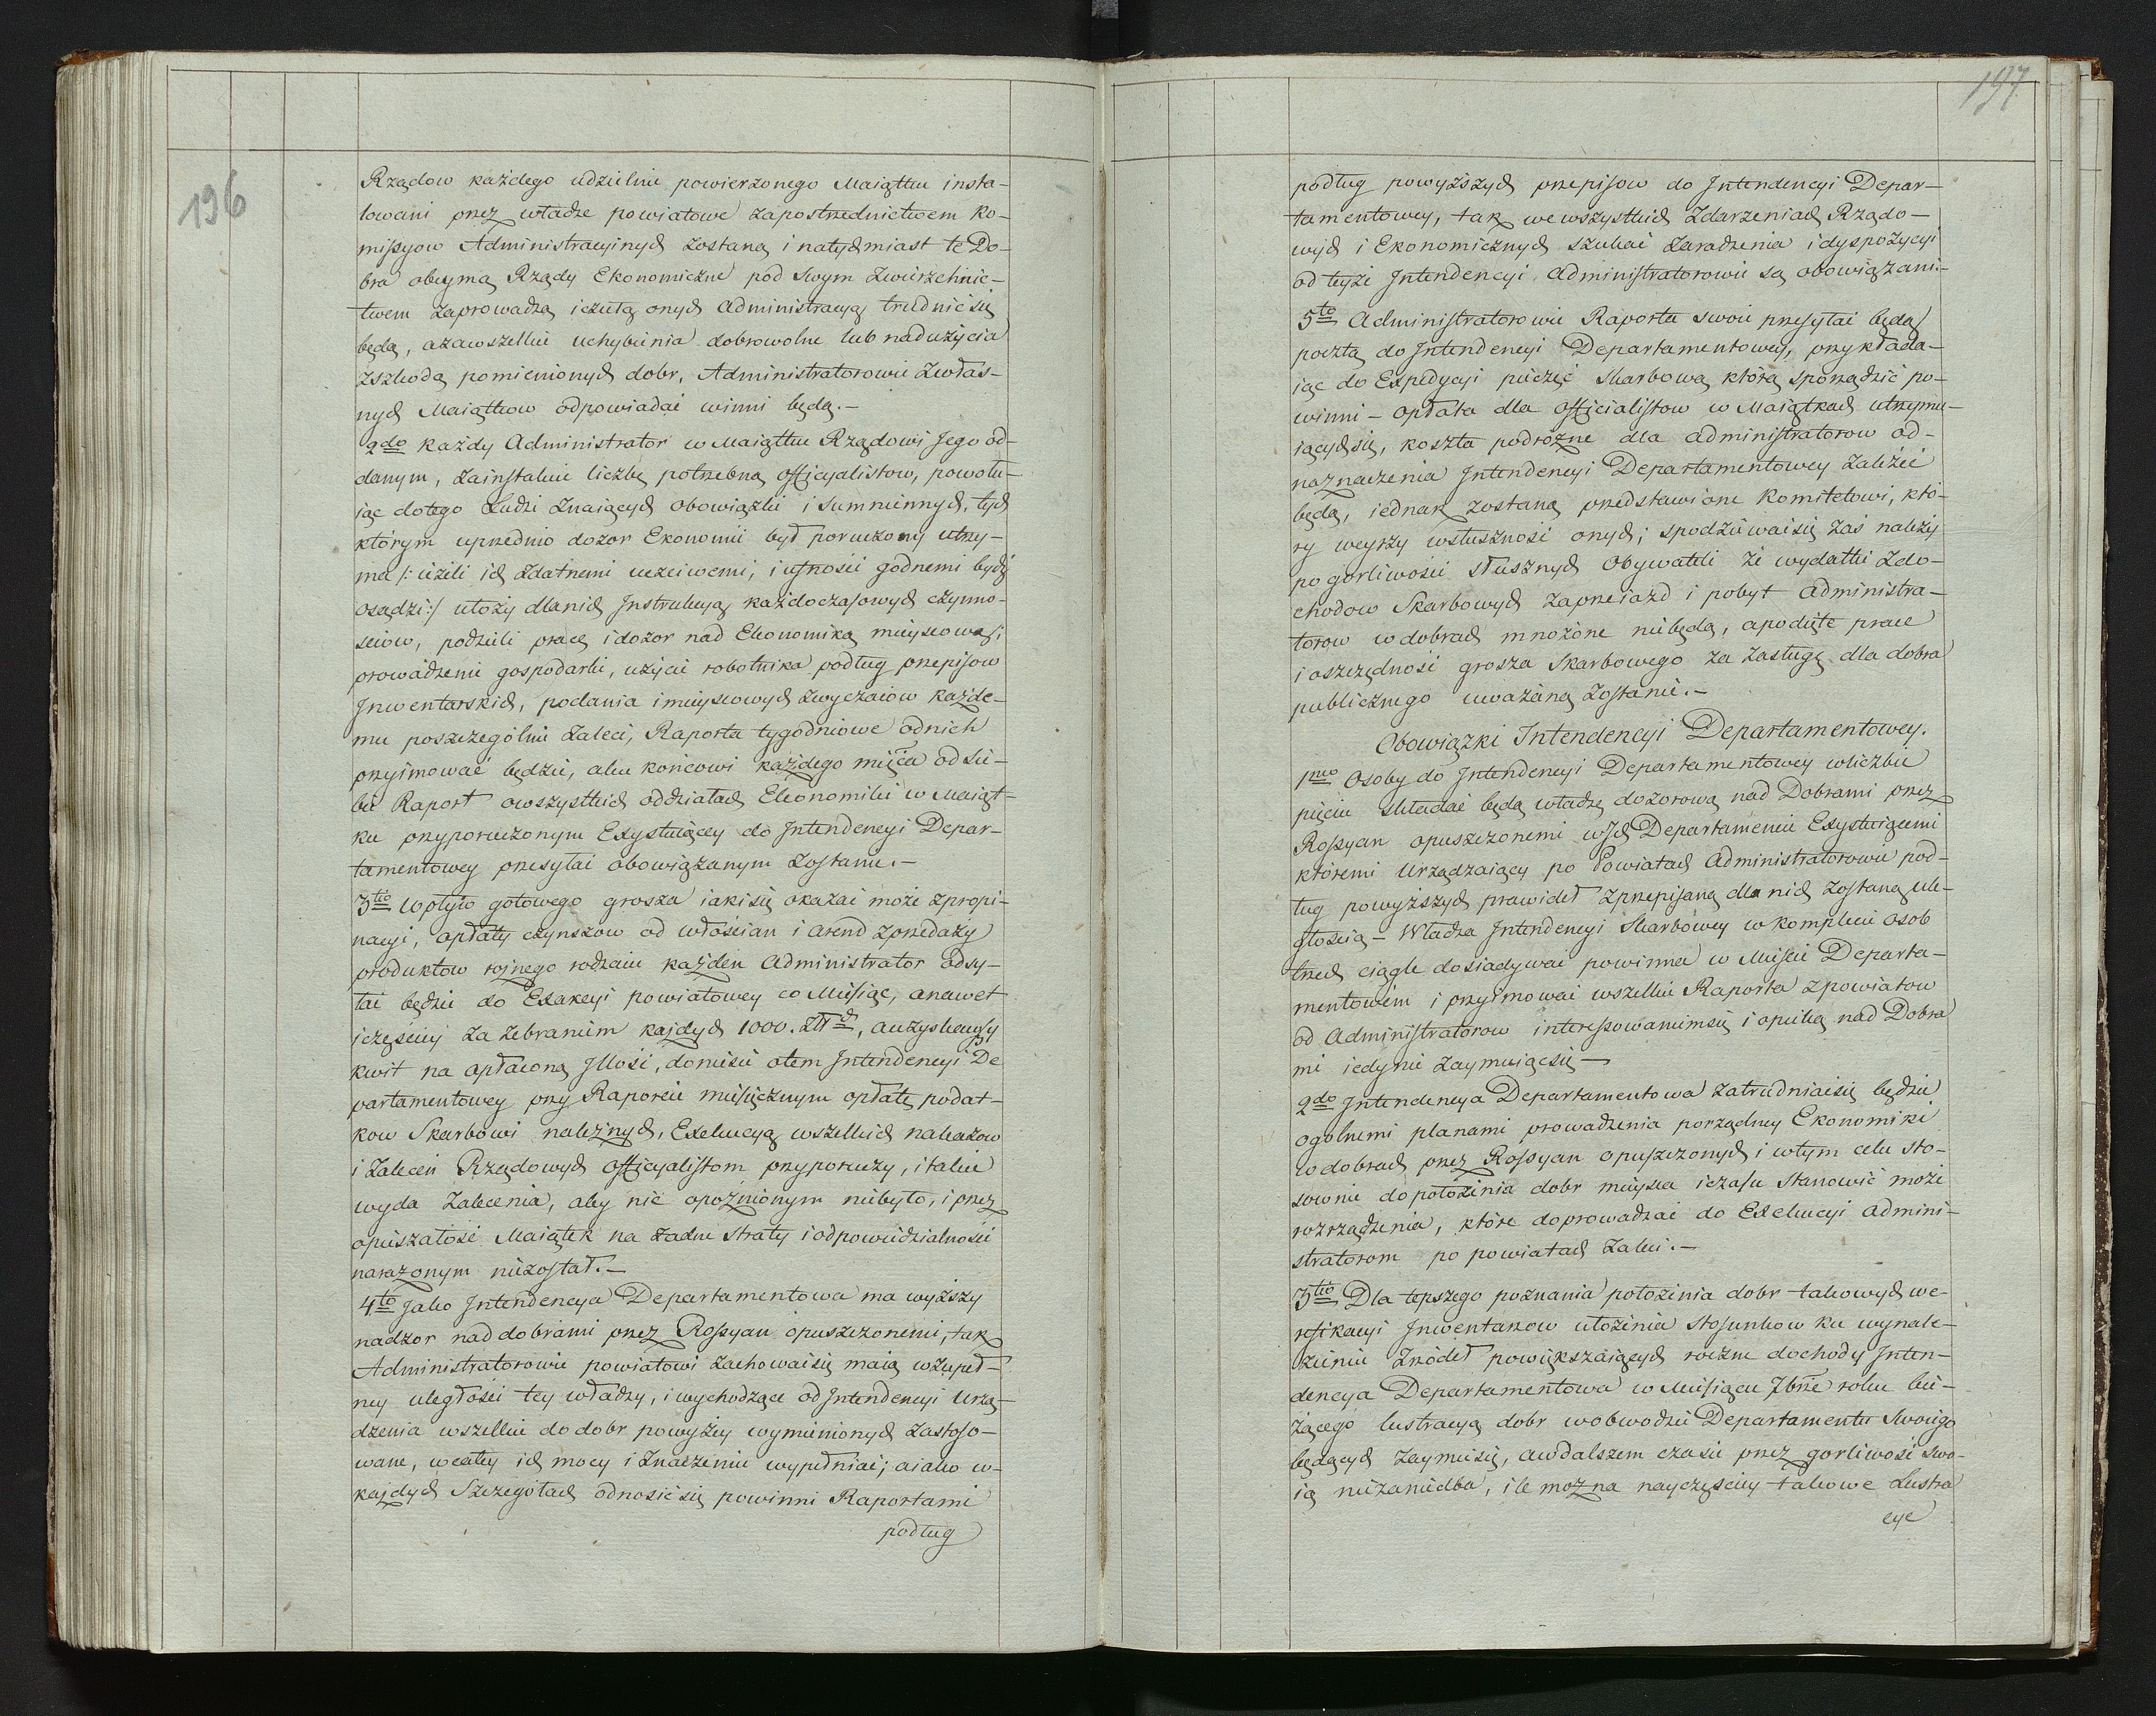 196
Rządow każdego udzielnie powierzonego Maiątku insta-
lowani przez władze powiatowe zapostrzednictwem Ko-
missyow Administracyinych zostaną i natychmiast te Do-
bra obeymą Rządy Ekonomiczne pod swym Zwierzchnic-
twem zaprowadzą iczułą onych administracyą trudnić się
będą, azawszelkie uchybienia dobrowolne lub nadużycia
zszkodą pomienionych dobr, Administratorowie Zwłas-
nych Maiątkow odpowiadać winni będą.-
2do każdy Administrator w Maiątku Rządowi Jego od-
danym, zainstaluie liczbę potrzebną officyalistow, powołu-
iąc dotego Ludzi Znaiących obowiązki i Sumniennych, tych
którym uprzednio dozor Ekonomii był poruczony utrzy-
ma /: ieżeli ich zdatnemi uczciwemi, i ufności godnemi bydź
osądzi:/ ułoży dlanich Instrukcyą każdoczasowych czynno-
sciow, podzieli pracę idozor nad Ekonomiką mieyscową,
prowadzenie gospodarki, użycie robotnika podług przepisow
Inwentarskich, podania imieyscowych zwyczaiow każde-
mu poszczególnie zaleci, Raporta tygodniowe odnich
przyimować będzie, aku końcowi każdego mięca od sie-
bie Raport owszystkich oddziałach Ekonomiki w Maiąt-
ku przyporuczonym Exystuiącey do Intendencyi Depar-
tamentowey przesyłać obowiązanym zostanie.-
3tio Wpływ gotowego grosza iaki się okazać może zpropi-
nacyi, opłaty czynszow od włościan i arend zprzedaży
produktow rożnego rodzaiu każden Administrator odsy-
łać będzie do Exakcyi powiatowey co Miesiąc, anawet
iczęściey za zebraniem każdych 1000. Złłch, auzyskawszy
kwit na opłaconą Illość, doniesie otem Intendencyi De
partamentowey przy Raporcie miesięcznym opłatę podat-
kow Skarbowi należnych, Exekucyą wszelkich nakazow
i Zaleceń Rządowych officyalistom przyporuczy, i takie
wyda Zalecenia, aby nic opoźnionym niebyło, i przez
opieszałość Maiątek na żadne straty i odpowiedzialności
narażonym niezostał.-
4to Jako Intendencya Departamentowa ma wyższy
nadzor nad dobrami przez Rossyan opuszczonemi, tak
Administratorowie powiatowi zachowaćsię maią wzupeł-
ney uległości tey władzy, i wychodzące od Intendencyi Urzą-
dzenia wszelkie do dobr powyżey wymienionych zastoso-
wane, wcałey ich mocy i Znaczeniu wypełniać; aiako w-
każdych Szczegółach odnosić się powinni Raportami
podług
197
podług powyższych przepisow do Intendencyi Depar-
tamentowey, tak wewszystkich Zdarzeniach Rządo-
wych i Ekonomicznych szukać Zaradzenia i dyspozycyi
od teyże Intendencyi Administratorowie są obowiązani.-
5to Administratorowie Raporta swoie przesyłać będą
pocztą do Intendencyi Departamentowey, przykłada-
iąc do Expedycyi pieczęć skarbową którą sporządzić po-
winni - opłata dla officialistow w Maiątkach utrzymu-
iącychsię, koszta podróżne dla Administratorow od-
naznaczenia Intendencyi Departamentowey zależeć
będą, iednak zostaną przedstawione Komitetowi, któ-
ry weyrzy wsłuszność onych; spodziewaćsię zaś należy
po gorliwości słusznych Obywateli że wydatki zdo-
chodow Skarbowych zaprzeiazd i pobyt Administra-
torow wdobrach mnożone niebędą, apodięte prace
i oszczędność grosza Skarbowego za zasługę dla dobra
publicznego uważaną Zostanie.-
Obowiązki Intendencyi Departamentowey.
1mo Osoby do Intendencyi Departamentowey wliczbie
pięciu składać będą władzę dozorową nad Dobrami przez
Rossyan opuszczonemi wIch Departamencie Exystuiącemi
któremi Urządzaiący po Powiatach Administratorowie pod-
ług powyższych prawideł zprzepisaną dla nich zostaną ule-
głością - Władza Intendencyi Skarbowey wkomplecie osob
trzech ciągle dosiadywać powinna w Mieście Departa-
mentowém i przyimować wszelkie Raporta zpowiatow
od Administratorow interessowaniemsię i opieką nad Dobra
mi iedynie zaymuiącsię -
2do Intendencya Departamentowa zatrudniaćsię będzie
ogolnemi planami prowadzenia porządney Ekonomiki
wdobrach przez Rossyan opuszczonych i wtym celu sto-
sownie dopołożenia dobr mieysca iczasu Stanowić może
rozrządzenia, które doprowadzać do Exekucyi admini-
stratorom po powiatach zaleci.-
3tio Dla lepszego poznania położenia dobr takowych we-
refikacyi Inwentarzow ułożenia stosunkow ku wynale-
zieniu Zrodeł powiększaiących roczne dochody Inten-
dencya Departamentowa w Miesiącu 7brze roku bie-
żącego lustracyą dobr wobwodzie Departamentu swoiego
będących zaymiesię, awdalszem czasie przez gorliwość swo-
ią niezaniedba, ile można nayczęściey takowe Lustra
cye